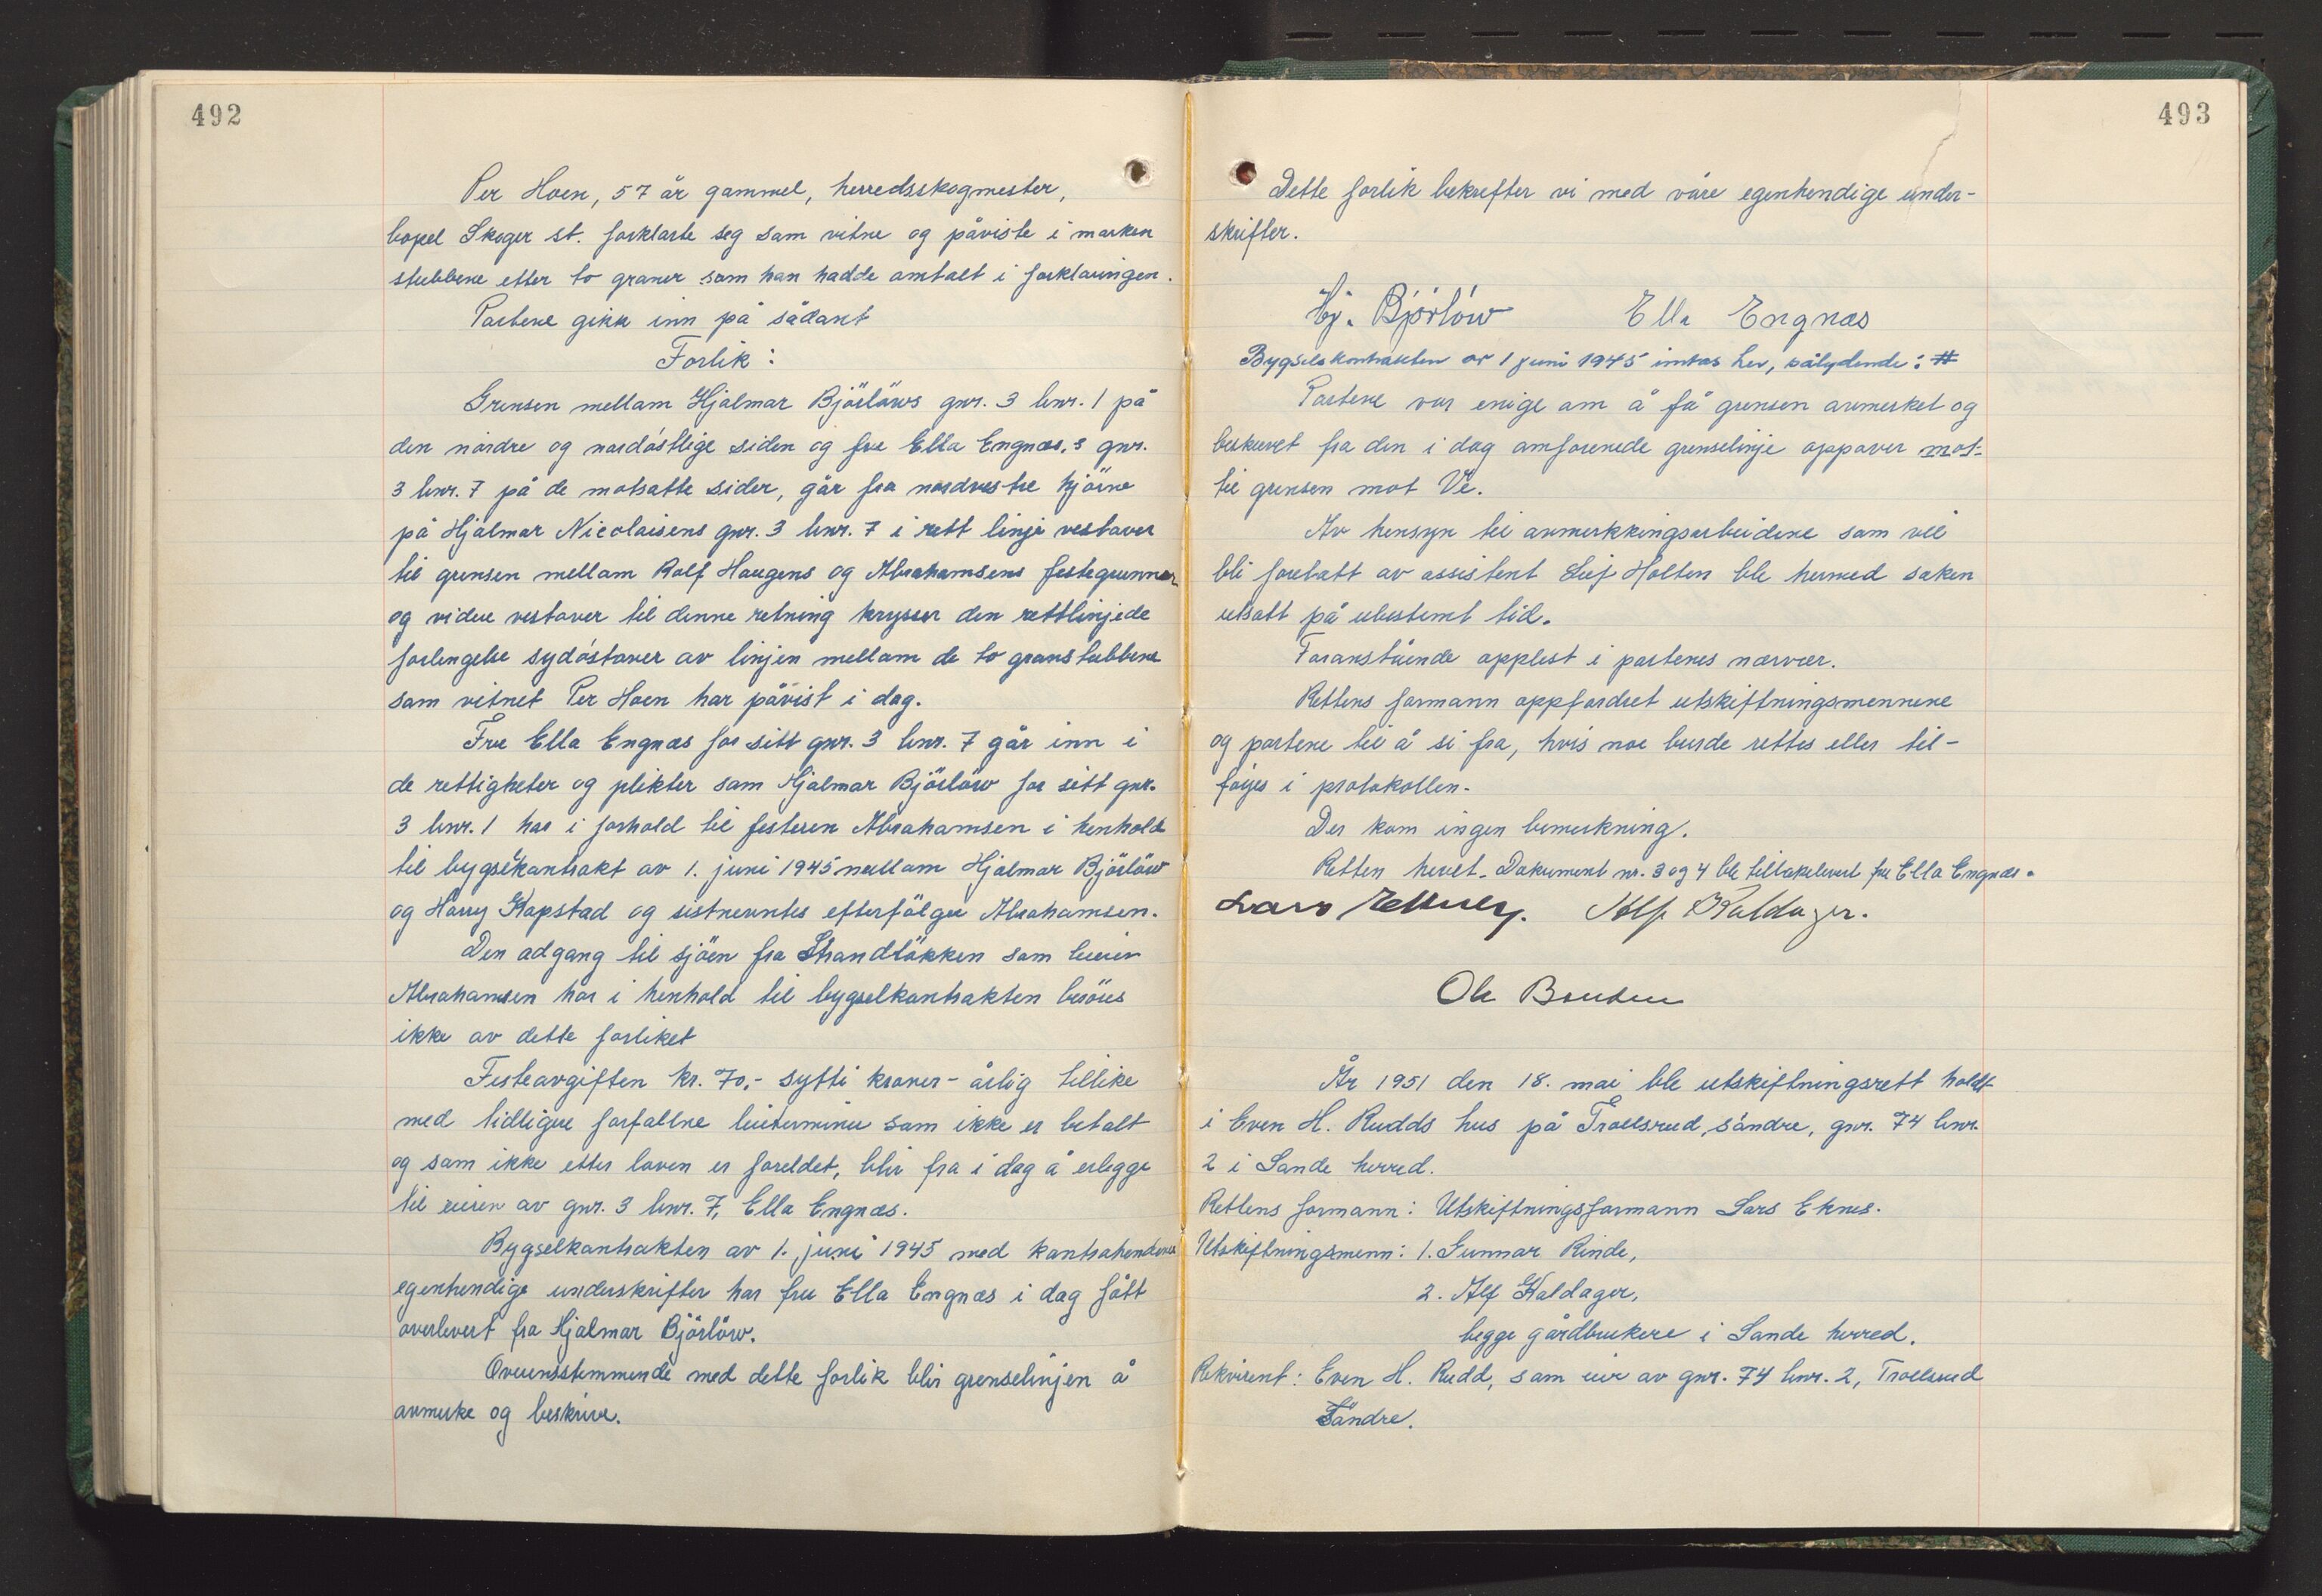 492
Per Hoen, 57 år gammel, herredsskogmester,
bopel Skoger st. forklarte seg som vitne og påviste i marken
stubbene etter to graner som han hadde omtalt i forklaringen.
Partene gikk inn på sådant
Forlik:
Grensen mellom Hjalmar Björlöws gnr. 3 bnr. 1 på
den nordre og nordöstlige siden og fru Ella Engnæs,s gnr.
3 bnr. 7 på de motsatte sider, går fra nordvestre hjörne
på Hjalmar Nicolaisens gnr. 3 bnr. 7 i rett linje vestover
til grensen mellom Rolf Haugens og Abrahamsens festegrunner
og videre vestover til denne retning krysser den rettlinjede
forlengelse sydöstover av linjen mellom de to granstubbene
som vitnet Per Hoen har påvist i dag.
Fru Ella Engnæs for sitt gnr. 3 bnr. 7 går inn i
de rettigheter og plikter som Hjalmar Björlöw for sitt gnr.
3 bnr. 1 har i forhold til festeren Abrahamsen i henhold
til bygselkontrakt av 1. juni 1945 mellom Hjalmar Björlöw
og Harry Kopstad og sistnevntes efterfölger Abrahamsen.
Den adgang til sjöen fra Strandlökken som leieren
Abrahamsen har i henhold til bygselkontrakten beröres
ikke av dette forliket
Festeavgiften kr. 70,- sytti kroner - årlig tillike
med tidligere forfallne leieterminer som ikke er betalt
og som ikke etter loven er foreldet, blir fra i dag å erlegge
til eieren av gnr. 3 bnr. 7, Ella Engnæs.
Bygselkontrakten av 1. juni 1945 med kontrahendenes
egenhendige underskrifter har fru Ella Engnæs i dag fått
overlevert fra Hjalmar Björlöw.
Overensstemmende med dette forlik blir grenselinjen å
avmerke og beskrive.
493
Dette forlik bekrefter vi med våre egenhendige under-
skrifter.
Hj. Björlöw Ella Engnæs
Bygselskontrakten av 1 juni 1945 inntas her, pålydende: #
Partene var enige om å få grensen avmerket og
beskrevet fra den i dag omforenede grenselinje oppover mot-
til grensen mot Ve.
Av hensyn til avmerkkingsarbeidene som vil
bli foretatt av assistent Leif Holten ble hermed saken
utsatt på ubestemt tid.
Foranstående opplest i partenes nærvær.
Rettens formann oppfordret utskiftningsmennene
og partene til å si fra, hvis noe burde rettes eller til-
föyes i protokollen.
Der kom ingen bemerkning.
Retten hevet. Dokument nr. 3 og 4 ble tilbakelevert fru Ella Engnæs.
Lars Alf Kaldager.
Ole
År 1951 den 18. mai ble utskiftningsrett holdt
i Even H. Rudds hus på Trollsrud söndre, gnr. 74 bnr.
2 i Sande herred.
Rettens formann: Utskiftningsformann Lars Eknes.
Utskiftningsmenn: 1. Gunnar Rinde,
2. Alf Kaldager,
begge gårdbrukere i Sande herred.
Rekvirent: Even H. Rudd, som eier av gnr. 74 bnr. 2, Trollsrud
Söndre.